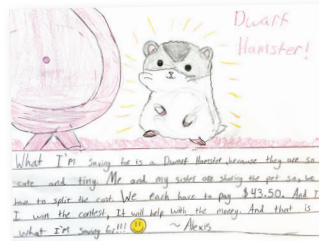 Dwarf
Hamster!
What I'm saving for is a Dwarf Hamster, because they are so
cute and tiny. Me and my sister are sharing the pet so, we
have to split the cost. We each have to pay $43.50. And I
I won the contest, It will help with the money. And that is
what I'm saving for!!! ~ Alexis